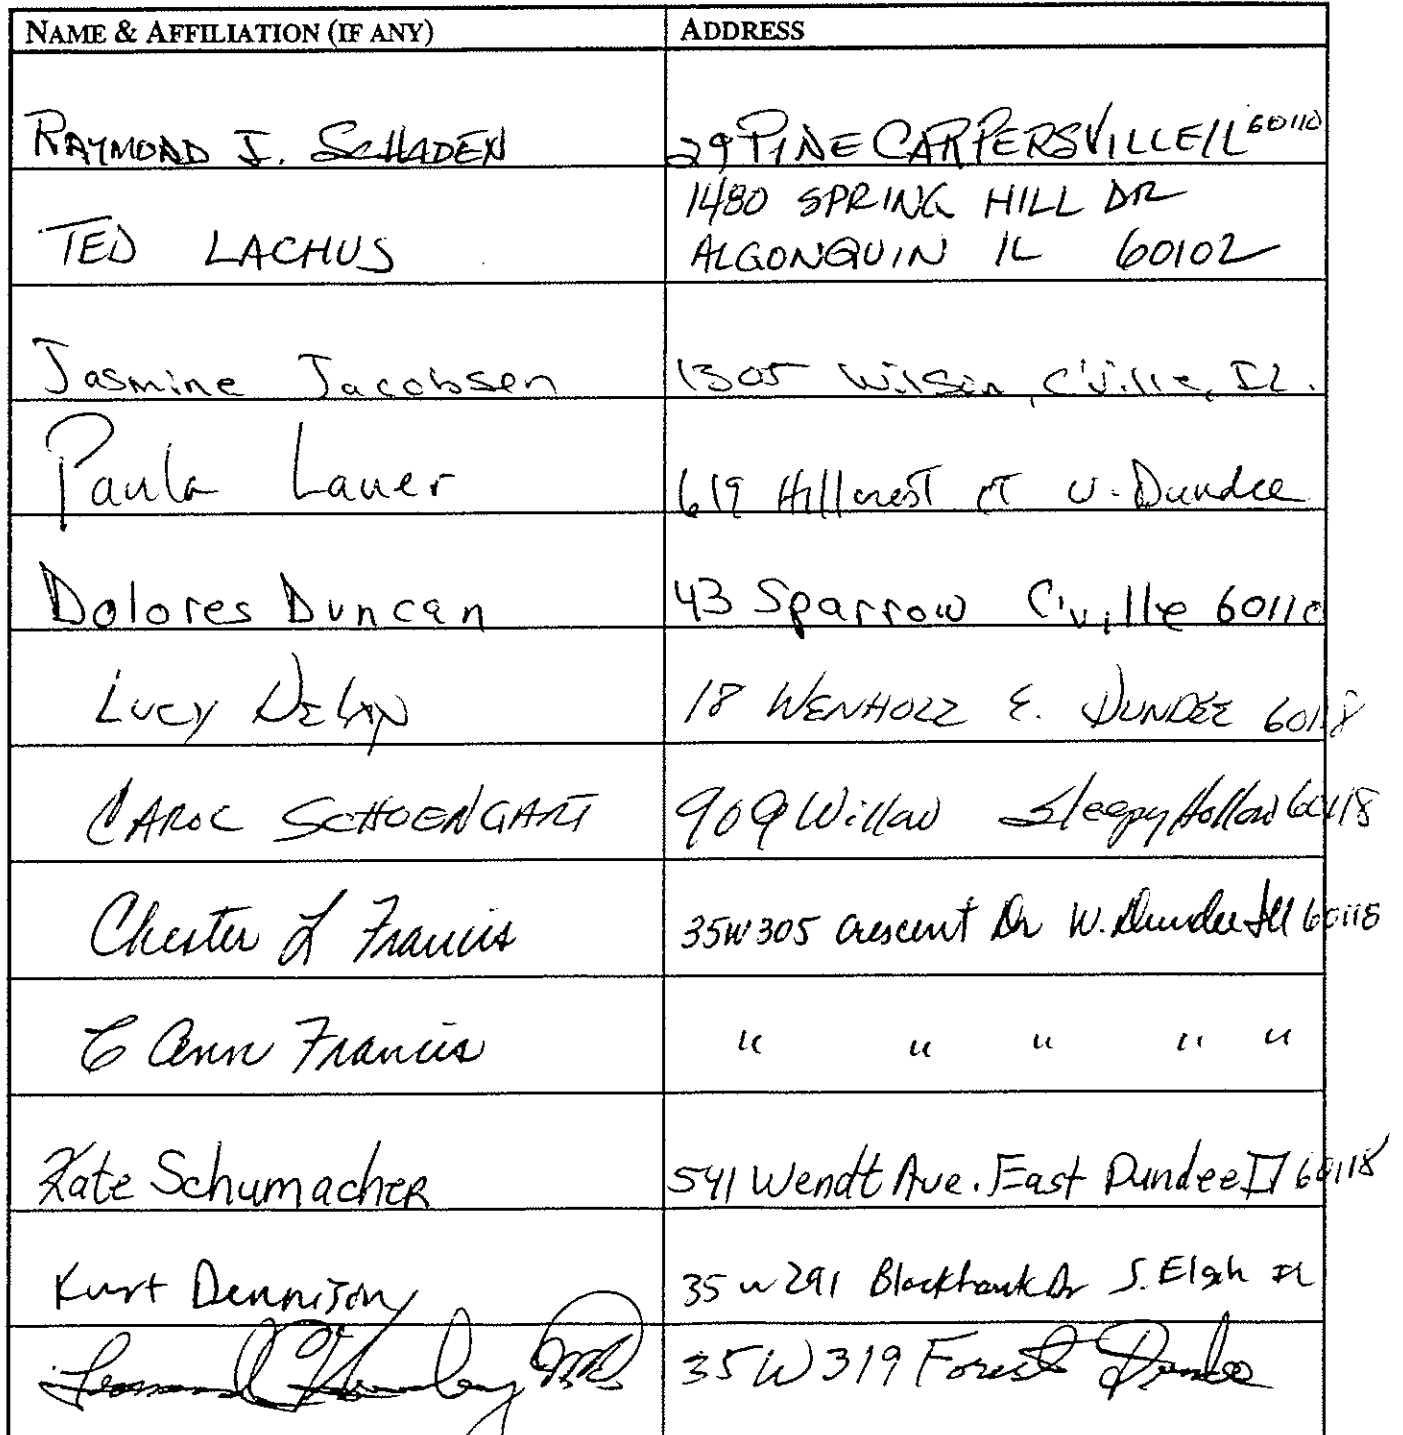 NAME & AFFILIATION (IF ANY) ADDRESS
RAYMOND J. SCHADEN 29 PINE CARPERSVILLE IL 60110
1480 SPRING HILL DR
TED LACHUS ALGONQUIN IL 60102
Jasmine Jacobsen 1305 Wilson, C'Ville, IL.
Paula Lauer 619 Hillcrest CT W. Dundee
Dolores Duncan 43 Sparrow C'ville 60110
Lucy 18 WENHOLZ E. DUNDEE 60118
CAROL SCHOENGART 909 Willow Sleepy Hollow 60118
Chester L Francis 35W305 Crescent Dr W. Dundee Ill 60118
C Ann Francis " " " " "
Kate Schumacher 541 Wendt Ave. East Dundee Il 60118
Kurt Dennison 35w291 Blackhawk Dr S. Elgin IL
35W319 Forest Dundee